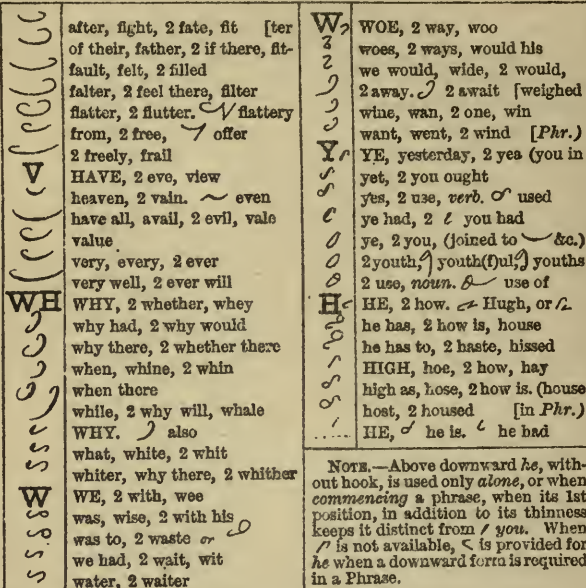 after, fight, 2 fate, fit [ter
of their, father, 2 if there, fit-
fault, felt, 2 filled
falter, 2 feel there, filter
flatter, 2 flutter. flattery
from, 2 free, offer
2 freely, frail
V HAVE, 2 eve, view
heaven, 2 vain. even
have all, avail, 2 evil, vale
value
very, every, 2 ever
very well, 2 ever will
WH WHY, 2 whether, whey
why had, 2 why would
why there, 2 whether there
when, whine, 2 whin
when there
while, 2 why will, whale
WHY. also
what, white, 2 whit
whiter, why there, 2 whither
W WE, 2 with, wee
was, wise, 2 with his
was to, 2 waste or
we had, 2 wait, wit
water, 2 waiter
W WOE, 2 way, woo
woes, 2 ways, would his
we would, wide, 2 would,
2 away. 2 await [weighed
wine, wan, 2 one, win
want, went, 2 wind [Phr.)
Y YE, yesterday, 2 yea (you in
yet, 2 you ought
yes, 2 use, verb. used
ye had, 2 you had
ye, 2 you, (joined to &c.)
2 youth, youth(f)ul, youths
2 use, noun. use of
H HE, 2 how. Hugh, or
he has, 2 how is, house
he has to, 2 haste, hissed
HIGH, hoe, 2 how, hay
high as, hose, 2 how is. (house
host, 2 housed [in Phr.)
HE, he is. he had
NOTE.—Above downward he, with-
out hook, is used only alone, or when
commencing a phrase, when its 1st
position, in addition to its thinness
keeps it distinct from you. When
is not available, is provided for
he when a downward form is required
in a Phrase.